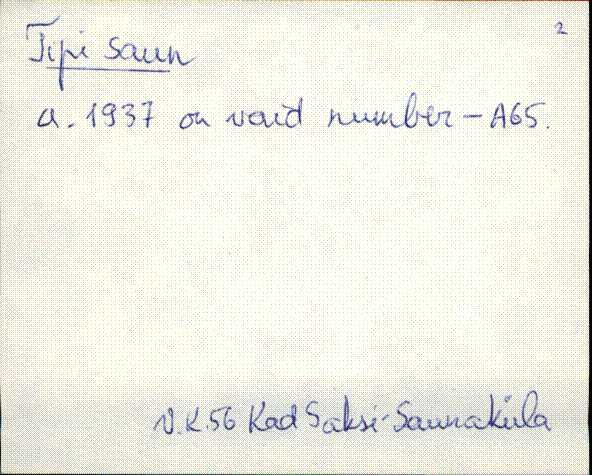 2
Tipi saun
a. 1937 on vaid number - A65.
V.K.56 Kad Saksi-Saunaküla